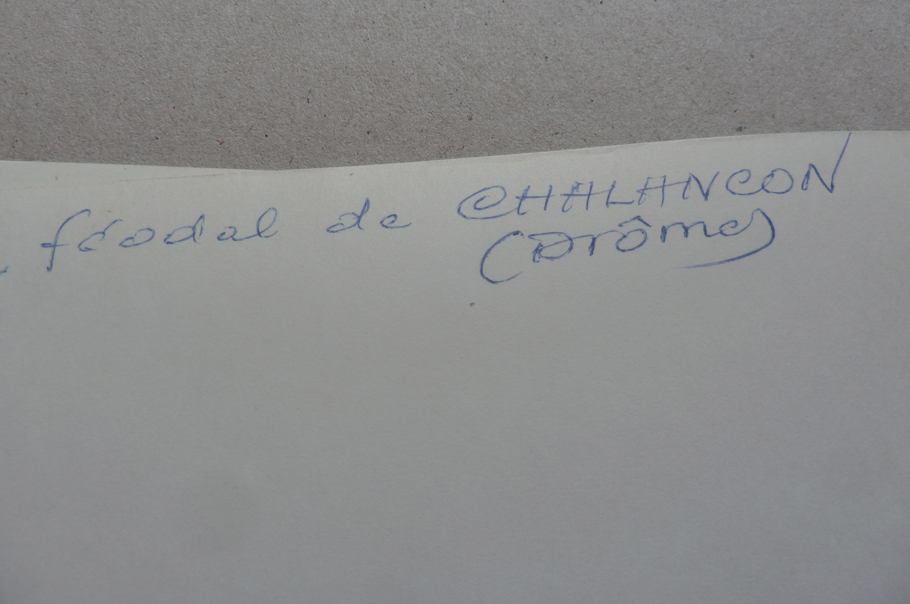 féodal de CHALANCON
(Drôme)